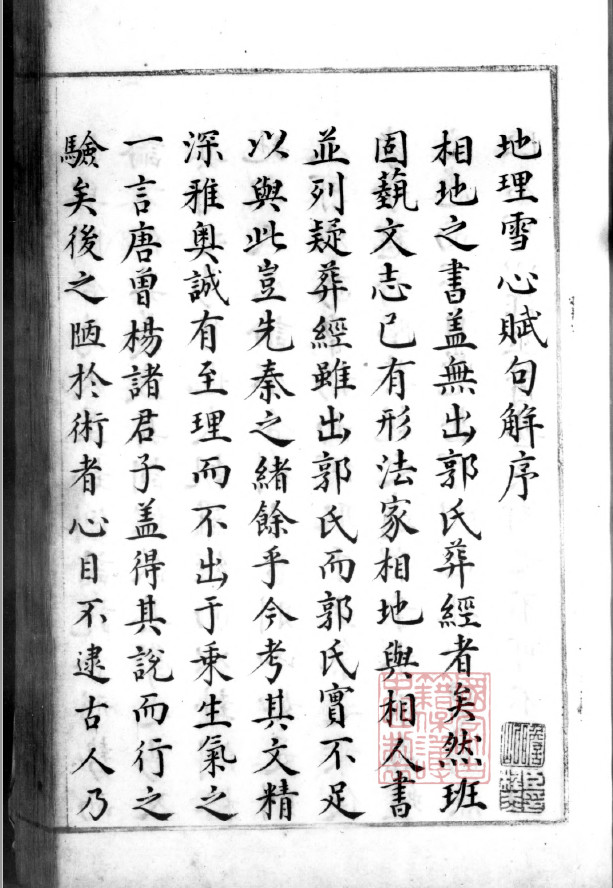 地理雪心賦句解序
相地之書盖無出郭氏葬經者矣然班
固藝文志已有形法家相地與相人書
並列疑葬經雖出郭氏而郭氏實不足
以與此豈先秦之緒餘乎今考其文精
深雅奥誠有至理而不出于乗生氣之
一言唐曾楊諸君子盖得其說而行之
驗矣後之陋於術者心目不逮古人乃